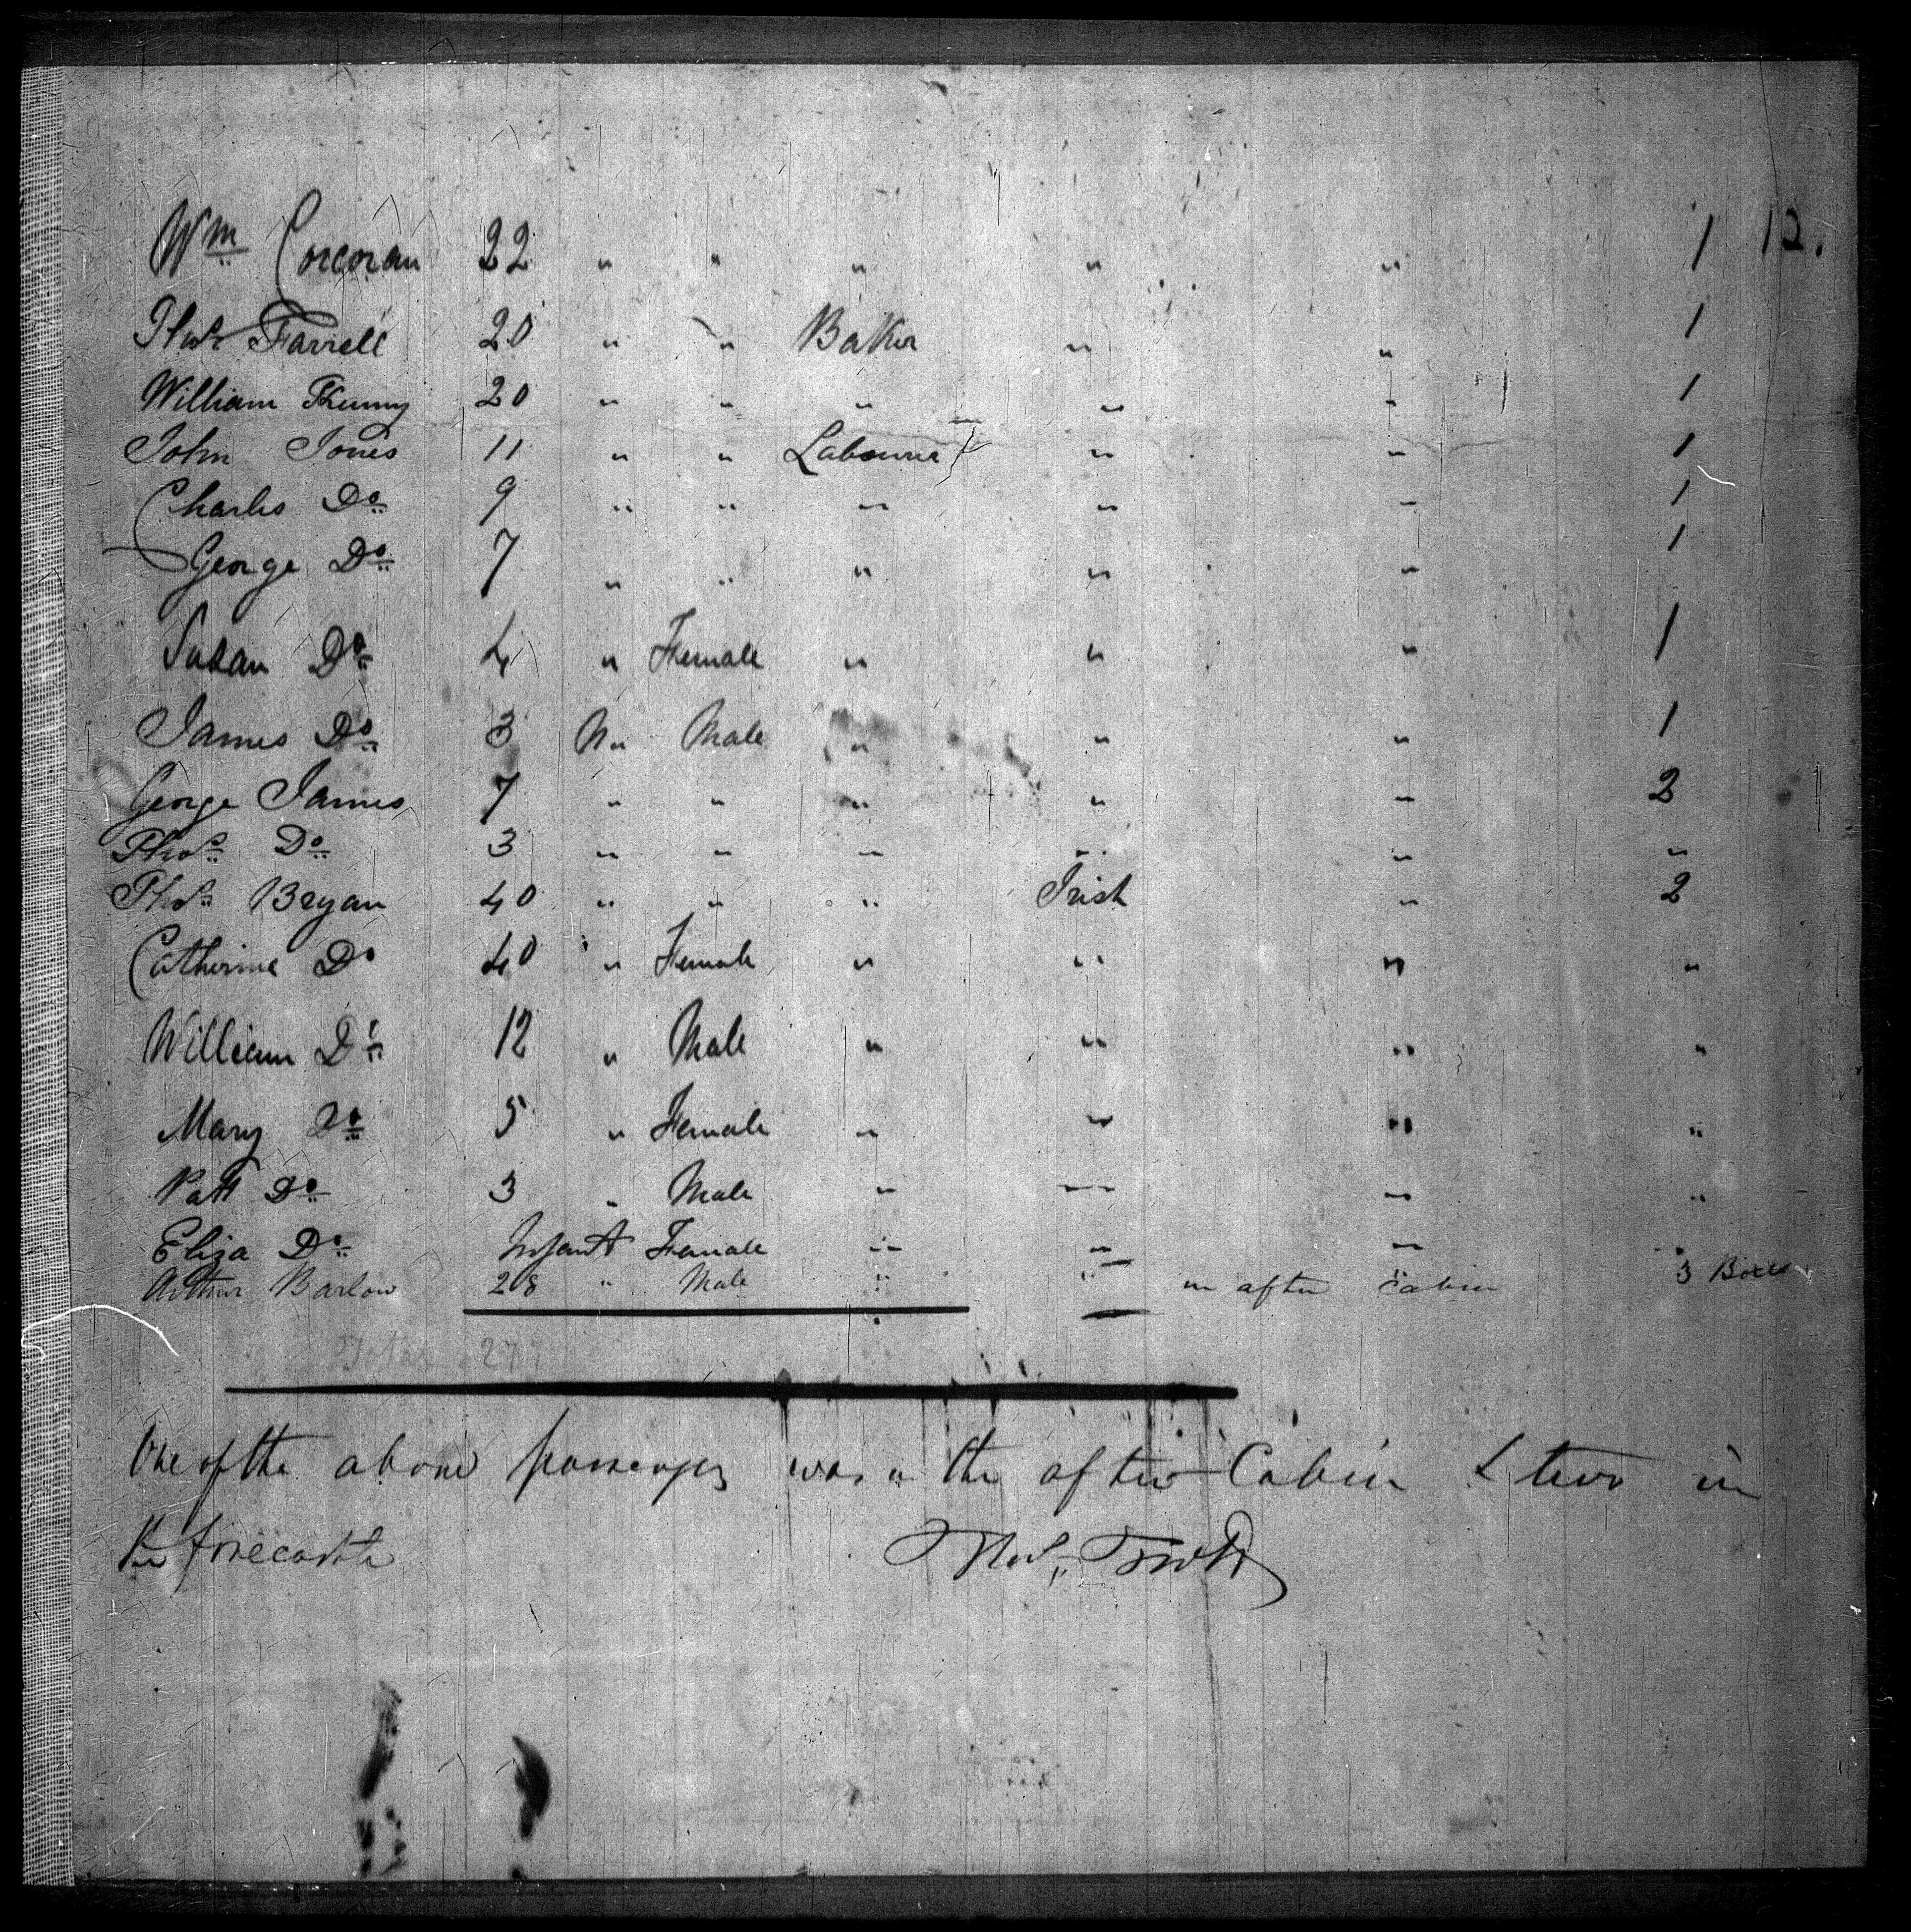 Wm Corcoran 22 " " " " " 1 12.
Thos Farrell 20 " " Baker " " 1
William Kenny 20 " " " " " 1
John Jones 11 " " Labourer " " 1
Charles Do 9 " " " " " 1
George Do 7 " " " " " 1
Susan Do 4 " Female " " " 1
James Do 3 " Male " " " 1
George James 7 " " " " " 2
Thos Do 3 " " " " " "
Thos Bryan 40 " " " Irish " 2
Catherine Do 40 " Female " " " "
William Do 12 " Male " " " "
Mary Do 5 " Female " " " "
Patt Do 3 " Male " " " "
Eliza Do Infant Female " " " "
Arthur Barlow 28 " Male " " in after cabin 3 Boxes
Total 277
One of the above passengers was in the after Cabin & two in
the forecastle Thos